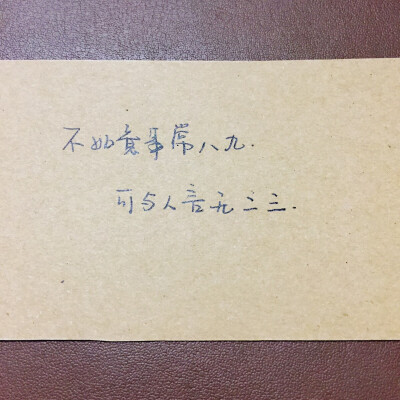 不如意事常八九.
可与人言无二三.